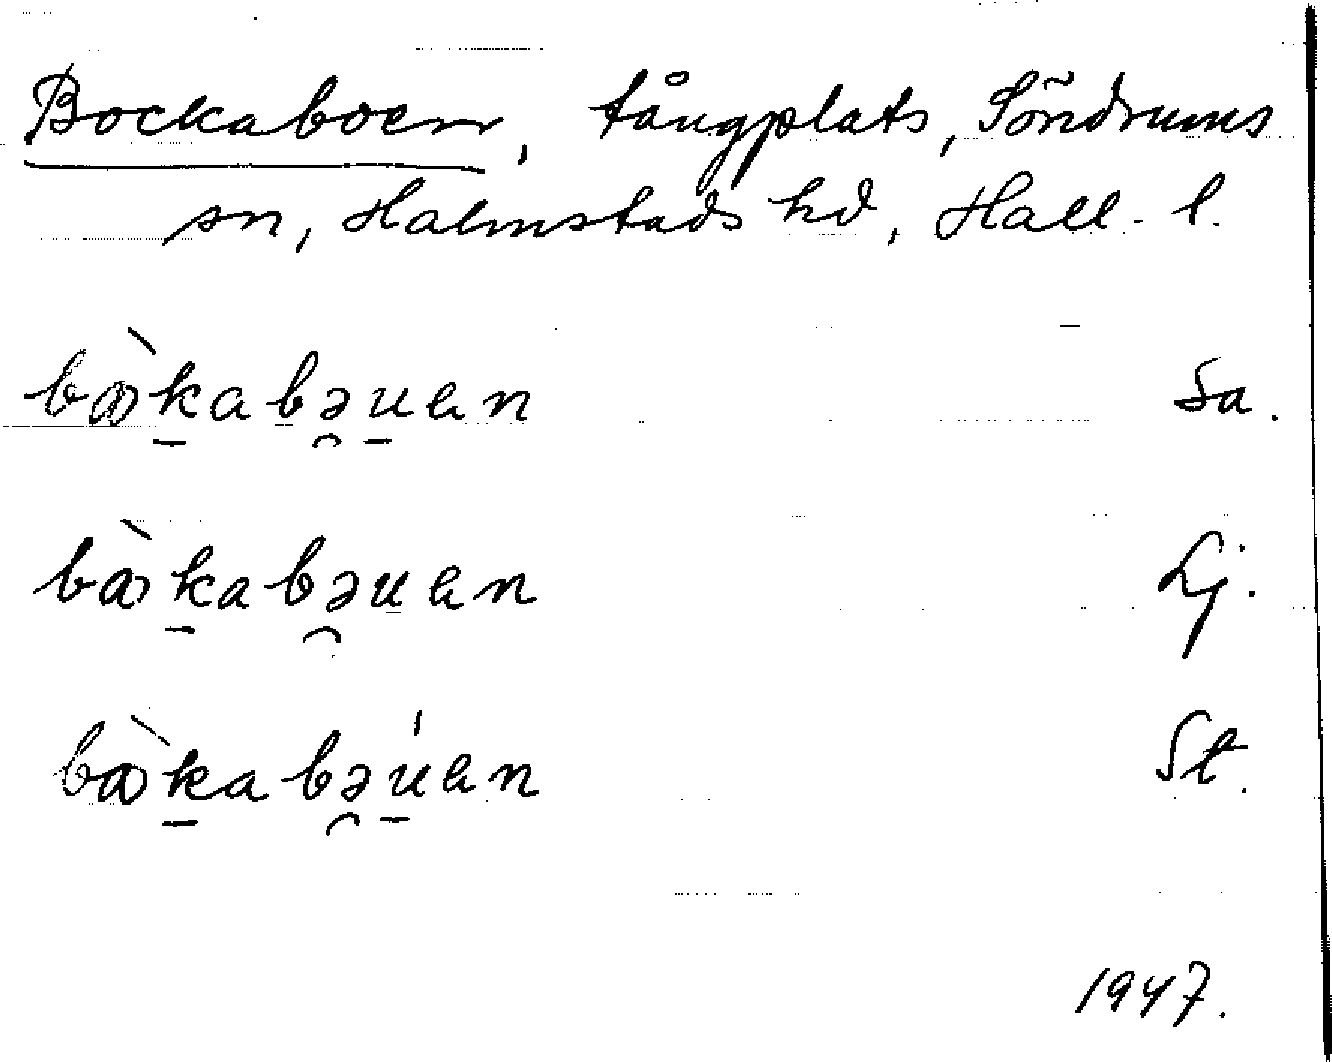 Bockaboen, tångplats, Söndrums
sn, Halmstads hd, Hall. l.
bὰk̠abə̯u̠en Sa.
bὰk̠abə̯u̠en Lj.
bὰk̠abə̯ú̠en St.
1947.